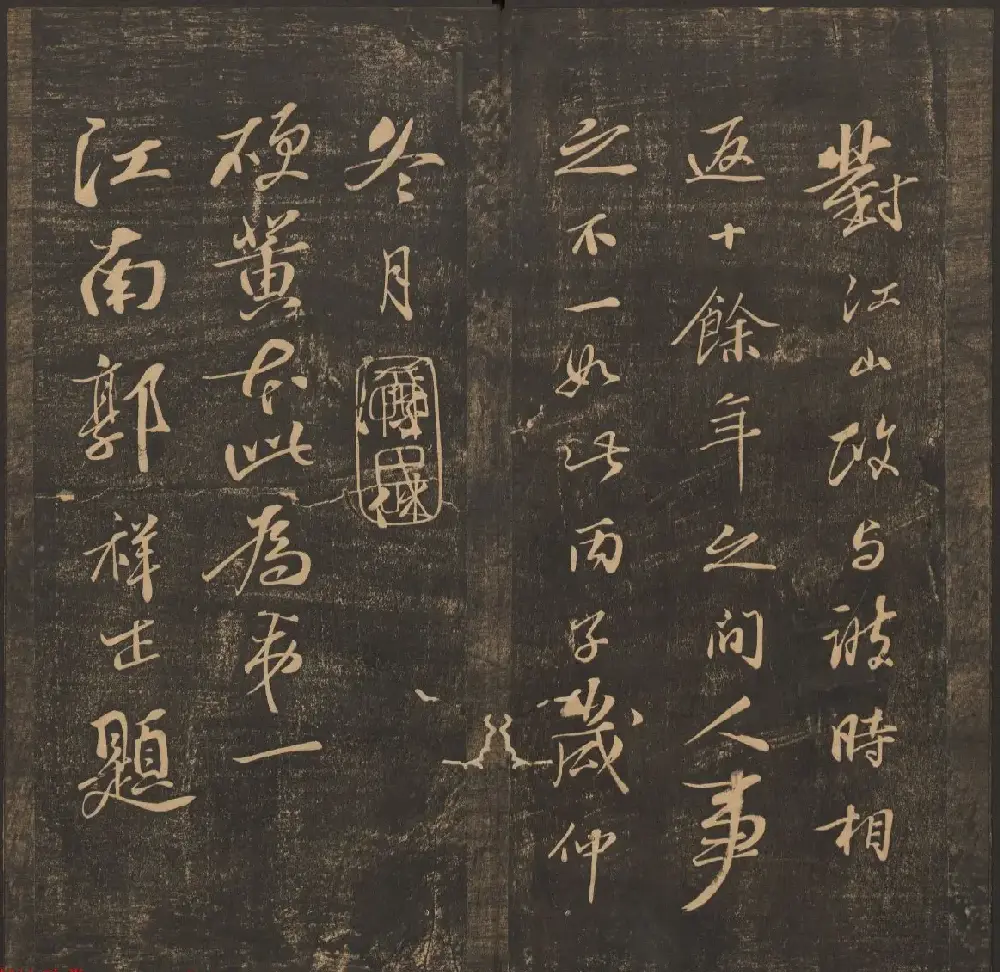 對江山改与謝時相
返十餘年之間人事
之不一如此丙子歲仲
冬月
硬黃本此為第一
江南郭祥正題